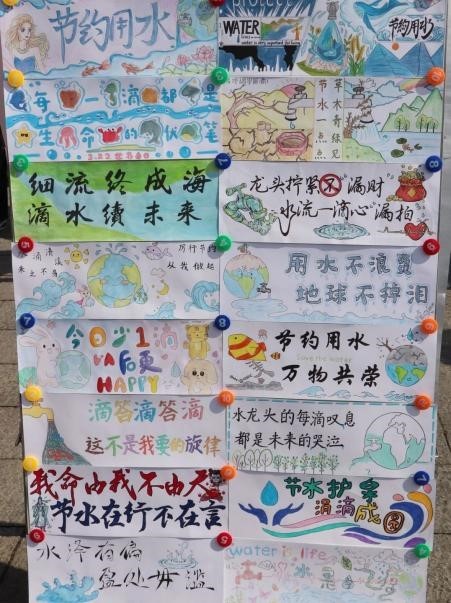 节约用水
WATER
节约用水
每一滴都是
生命的伏笔
3.22
节水
细流终成海
滴水续未来
龙头拧紧不“漏财”
水流一滴心“漏拍”
来之不易
厉行节约
从我做起
用水不浪费
地球不掉泪
今日少1滴
以后更
HAPPY
节约用水
Save the water
万物共荣
滴答滴答滴
这不是我要的旋律
水龙头的每滴叹息
都是未来的哭泣
我命由我不由天
节水在行不在言
节水护
涓滴成
水泽有偏
盈处毋滥
water is life
水